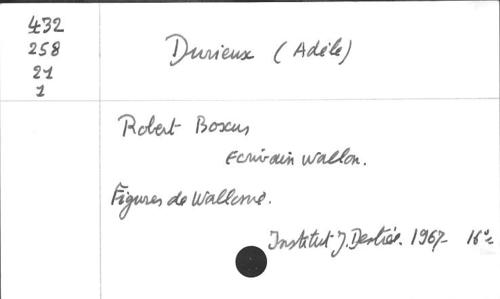 432
258
21
1
Durieux (Adèle)
Robert Boxus
Ecrivain wallon.
Figures de Wallonie.
Institut J. Destrée. 1967 16°